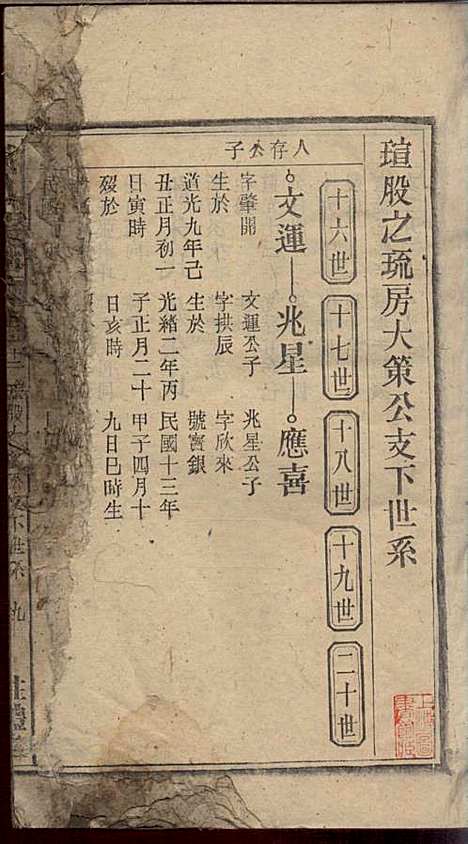 瑄股之琉房大策公支下世系
十六世
十七世
十八世
十九世
二十世
人存公子
文運
兆星
應喜
字肇開
生於
道光九年己
丑正月初一
日寅時
歿於
文運公子
字拱辰
生於
光緒二年丙
子正月二十
日亥時
兆星公子
字欣來
號寳銀
民國十三年
甲子四月十
九日巳時生
支下世系
九